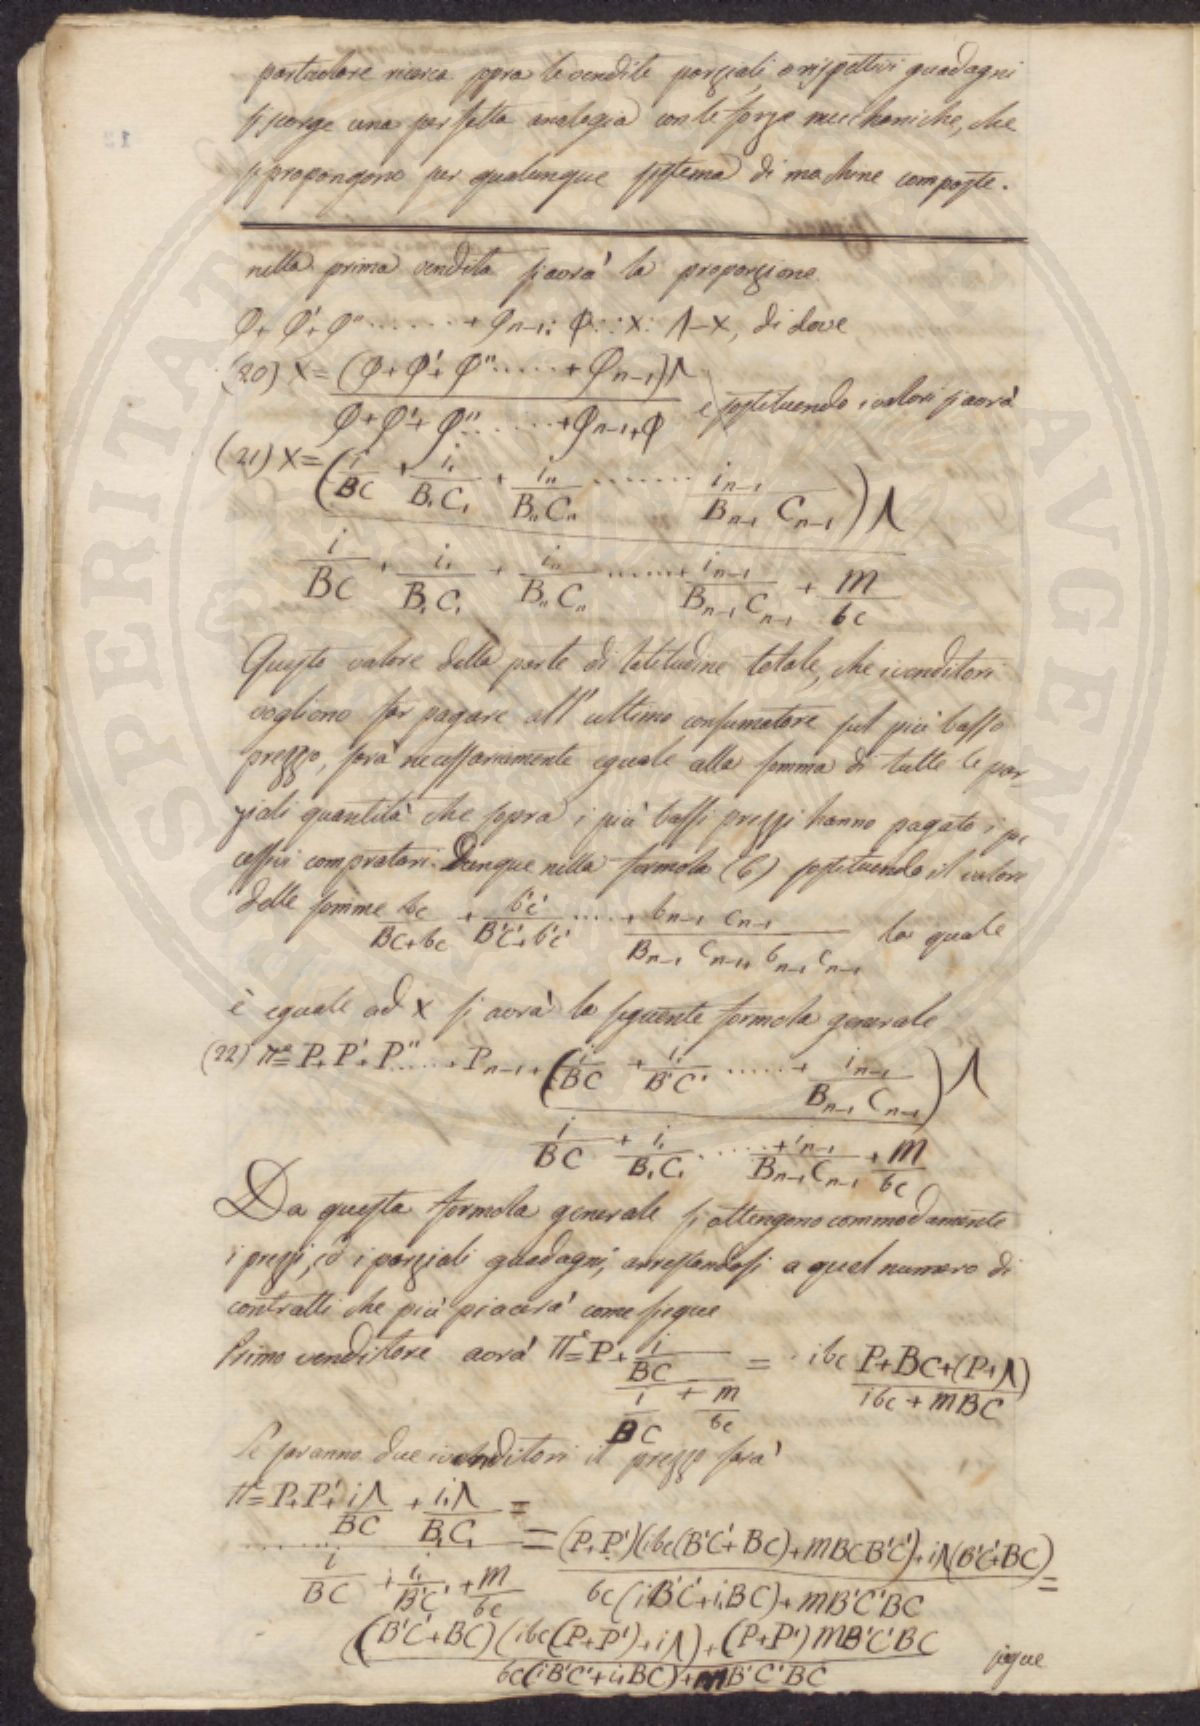 particolare ricerca sopra le vendite parziali, e rispettivi guadagni
si scorge una perfetta analogia con le forze mecchaniche, che
si propongono per qualunque sistema di machine composte.
nella prima vendita si avrà la proporzione
φ+φ'+φ''......+φn-1: φ::x: Λ-x, di dove
(20) x = (φ+φ'+φ''.....+φn-1)Λ / φ+φ'+φ''......+φn-1+φ e sostituendo i valori si avrà
(21) x = (i/BC + i,/B,C, + i,,/B,,C,, ....... in-1/Bn-1 Cn-1)Λ
i/BC + i,/B,C, + i,,/B,,C,, ......+ in-1/Bn-1 Cn-1 + m/bc
Questo valore della parte di latitudine totale, che i venditori
vogliono far pagare all'ultimo consumatore sul più basso
prezzo, sarà necessariamente eguale alla somma di tutte le par-
ziali quantità che sopra i più bassi prezzi hanno pagato i suc
cessivi compratori. Dunque nella formola (6) sostituendo il valore
delle somme bc/BC+bc + b'c'/B'C'+b'c' ....+ bn-1 cn-1/Bn-1 Cn-1+ bn-1 cn-1 la quale
è eguale ad x si avrà la seguente formola generale
(22) π = P+P'+P''.....+Pn-1+ (i/BC + i,/B'C' .....+ in-1/Bn-1 Cn-1)Λ
i/BC + i,/B,C, .....+ in-1/Bn-1 Cn-1 + m/bc
Da questa formola generale si ottengono commodamente
i prezzi, ed i parziali guadagni, arrestandosi a quel numero di
contratti che più piacerà come siegue
Primo venditore avrà π = P + i/BC / i/BC + m/bc = ibc P+BC+(P+Λ) / ibc + mBC
Se saranno due i venditori il prezzo sarà
π = P+P'+ iΛ/BC + i,Λ/B,C, =
i/BC + i,/B'C' + m/bc = (P+P')(ibc(B'C'+BC)+mBCB'C')+iΛ(B'C'+BC) / bc(iB'C'+i,BC)+mB'C'BC =
(B'C'+BC)(ibc(P+P')+iΛ)+(P+P')mB'C'BC / bc(iB'C'+i,BC)+mB'C'BC siegue